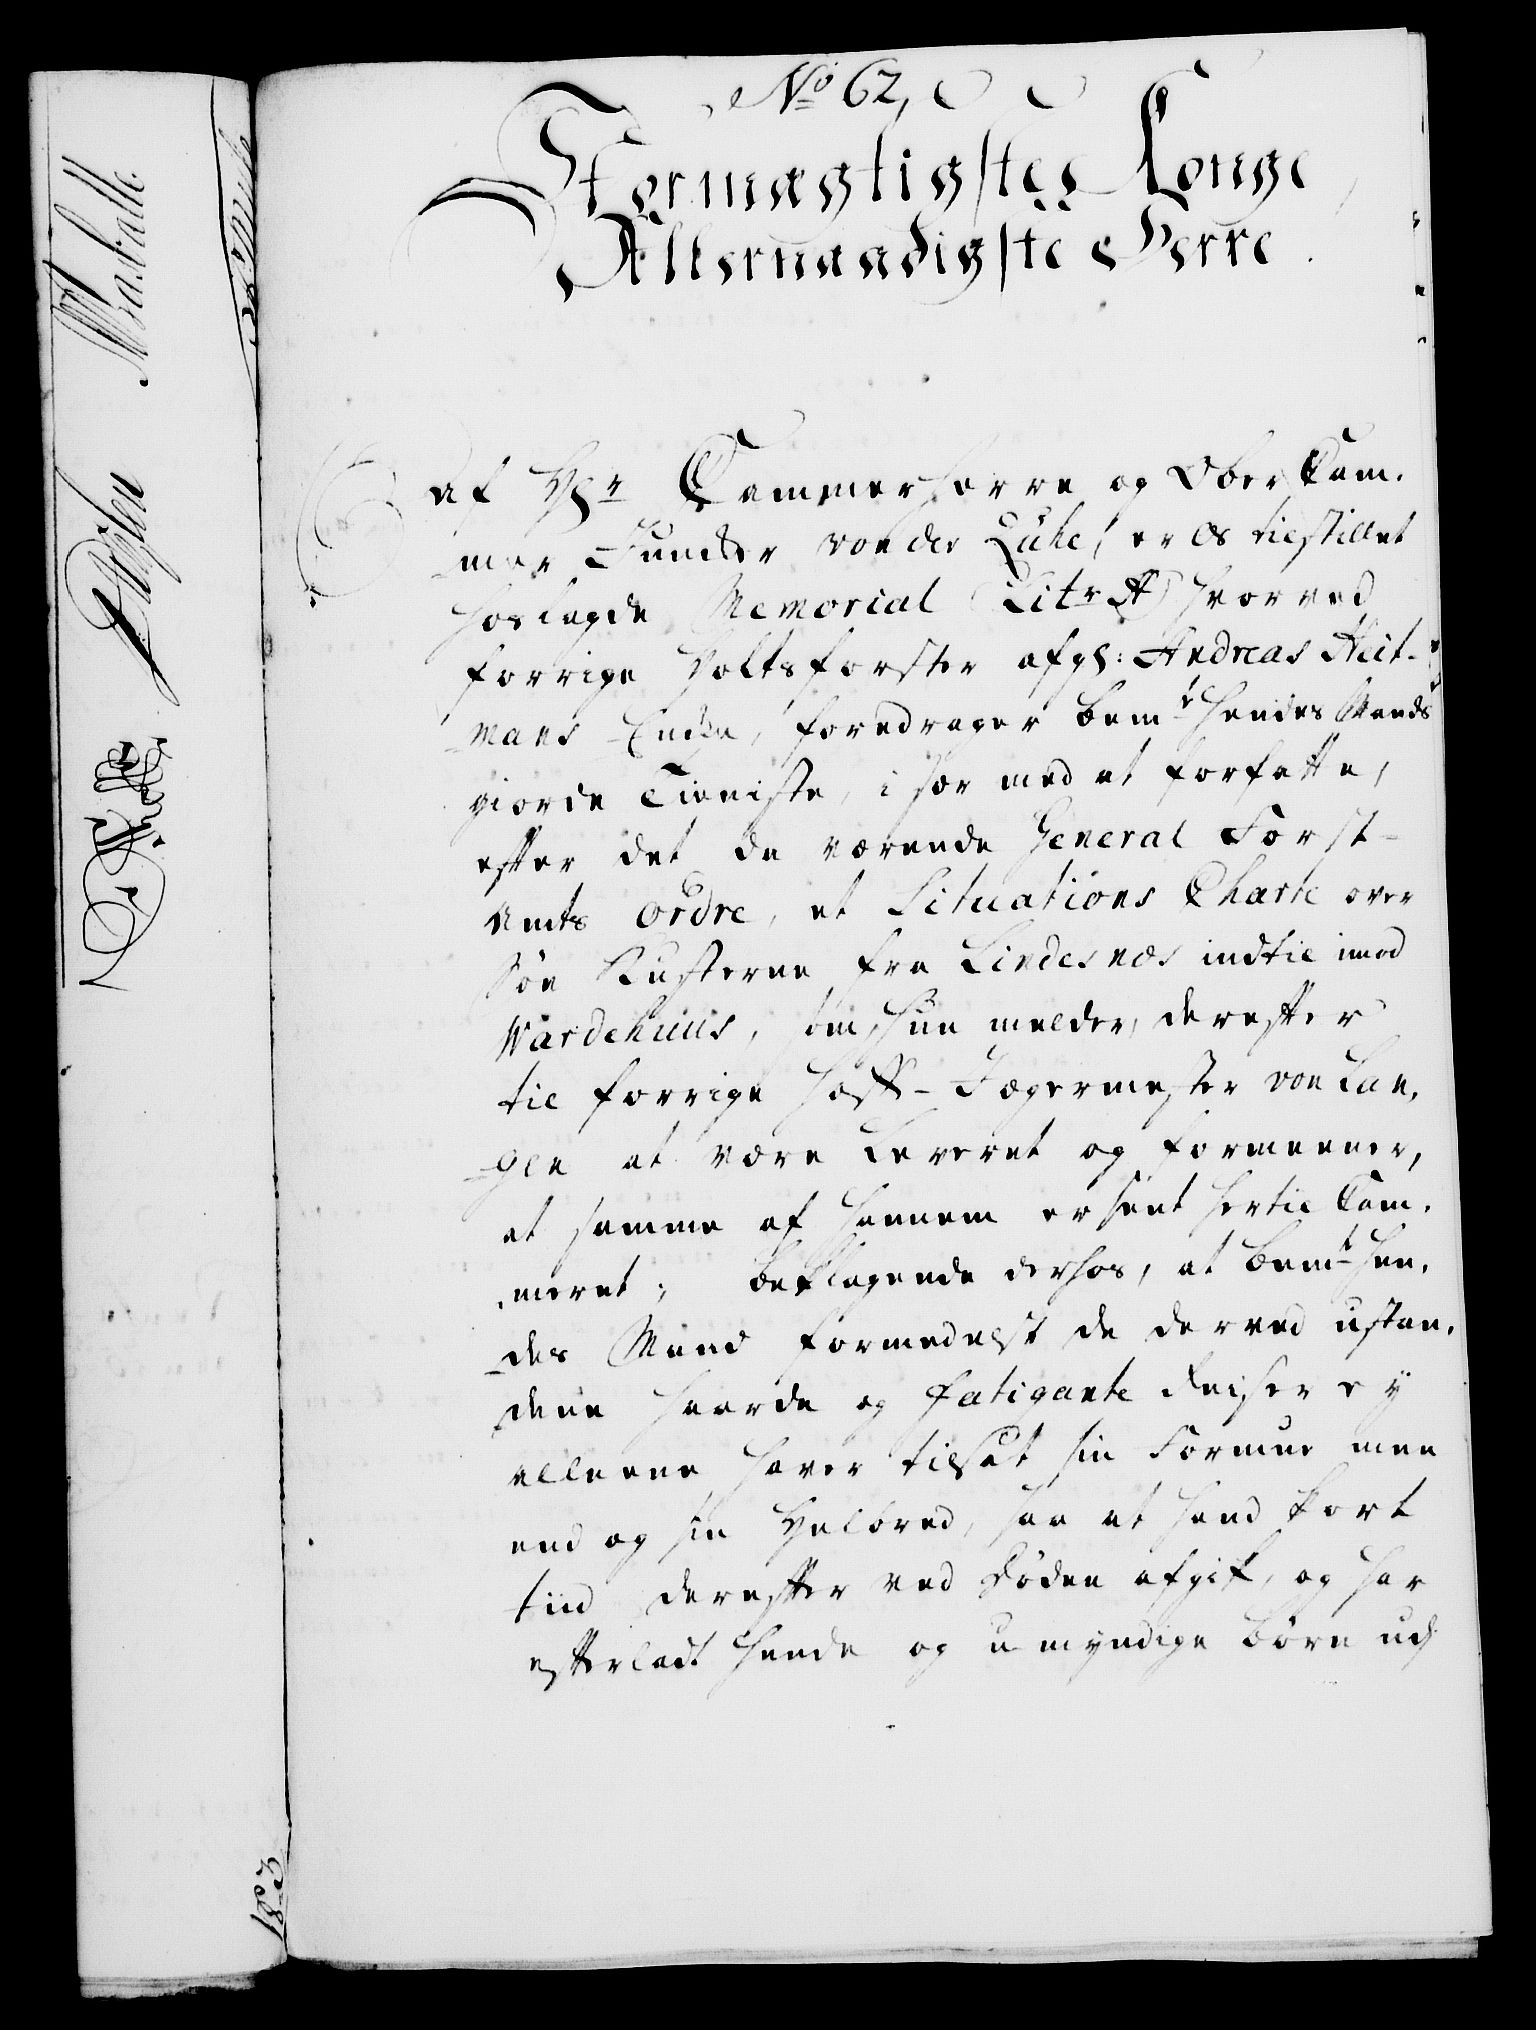 No 62,
Stormægtigste Konge
Allernaadigste Herre.
af Hr Cammerherre og Ober Kam-
mer Juncker von der Lühe, er os tilstillet
hoslagde Memorial Litr A hvorved
forrige Holtsforster afg: Andreas Heit-
mans Encke, foredrager bemte hendes Mands
giorde Tieniste, i sær med at forfatte,
efter det da værende General Forst-
Amts Ordre, et Situations Charte over
Søe Kusterne fra Lindesnæs indtil imod
Wardehuus, som hun melder, derefter
til forrige Hoff-Jægermester von Lan-
gen at være leveret og formeener,
at samme af hannem er sent hertil Cam-
meret; beklagende derhos, at bemte hen-
des Mand formedelst de derved udstan-
dene haarde og fatigante Reiser ey
alleene haver tilsat sin Formue men
end og sin Helbred, saa at hand kort
tiid derefter ved Døden afgik, og har
efterladt hende og u-myndige børn udj
Wartberg
183